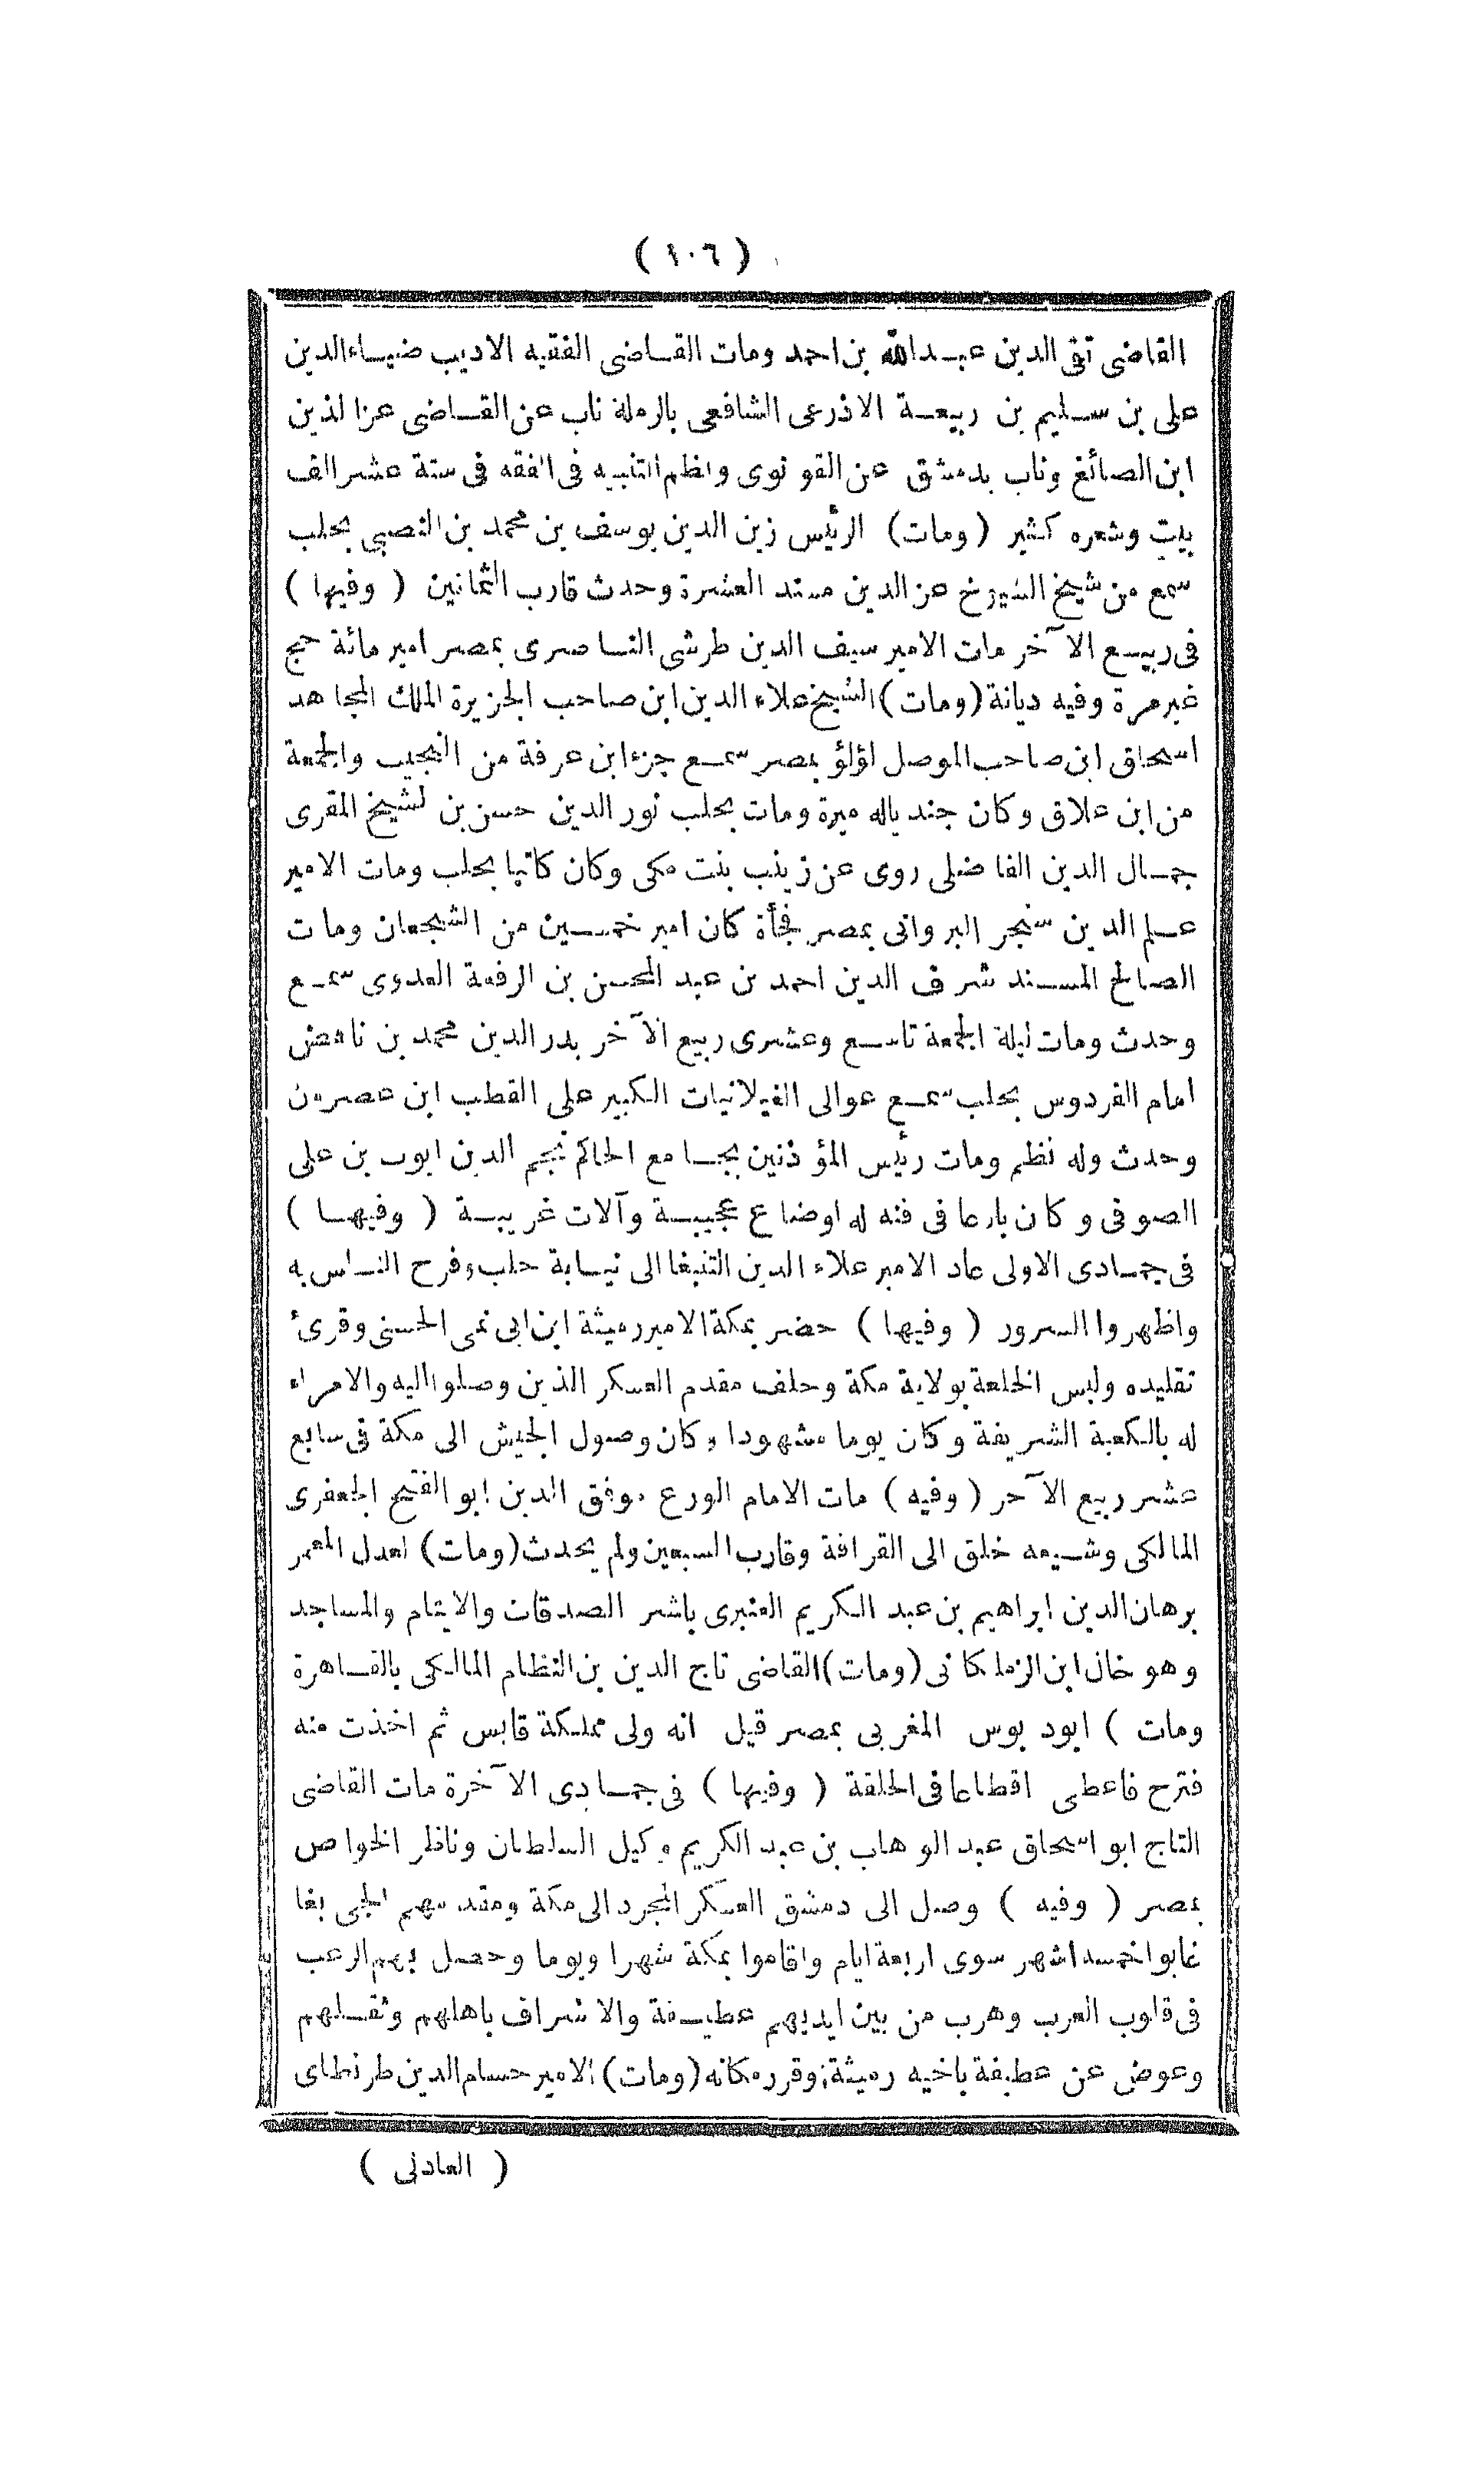 ( ١٠٦ )
القاضى تقى الدين عبد الله بن احمد ومات القاضى الفقيه الاديب ضياء الدين
على بن سليم بن ربيعة الاذرعى الشافعى بالرملة ناب عن القاضى عزالدين
ابن الصائغ وناب بدمشق عن القونوى ونظم التنبيه فى الفقه فى ستة عشر الف
بيت وشعره كثير (ومات) الرئيس زين الدين يوسف بن محمد بن النصبى بحلب
سمع من شيخ الشيوخ عز الدين مسند العشرة وحدث قارب الثمانين ( وفيها )
فى ربيع الآخر مات الامير سيف الدين طرشى الناصرى بمصر امير مائة حج
غير مرة وفيه ديانة (ومات) الشيخ علاء الدين ابن صاحب الجزيرة الملك المجاهد
اسحاق ابن صاحب الموصل لؤلؤ بمصر سمع جزء ابن عرفة من النجيب والجمعة
من ابن علاق وكان جنديا له ميرة ومات بحلب نور الدين حسن بن الشيخ المقرى
جمال الدين الفاضلى روى عن زينب بنت مكى وكان كاتبا بحلب ومات الامير
علم الدين سنجر البروانى بمصر فجأة كان امير خمسين من الشجعان ومات
الصالح المسند شرف الدين احمد بن عبد المحسن بن الرفعة العدوى سمع
وحدث ومات ليلة الجمعة تاسع وعشرى ربيع الآخر بدر الدين محمد بن ناهض
امام الفردوس بحلب سمع عوالى الغيلانيات الكبير على القطب ابن عصرون
وحدث وله نظم ومات رئيس المؤذنين بجامع الحاكم نجم الدين ايوب بن على
الصوفى وكان بارعا فى فنه له اوضاع عجيبة وآلات غريبة ( وفيها )
فى جمادى الاولى عاد الامير علاء الدين التنبغا الى نيابة حلب وفرح الناس به
واظهروا السرور ( وفيها ) حضر بمكة الامير رميثة ابن ابى نمى الحسنى وقرئ
تقليده ولبس الخلعة بولاية مكة وحلف مقدم العسكر الذين وصلوا اليه والامراء
له بالكعبة الشريفة وكان يوما مشهودا وكان وصول الجيش الى مكة فى سابع
عشر ربيع الآخر ( وفيه ) مات الامام الورع موفق الدين ابو الفتح الجعفرى
المالكى وشيعه خلق الى القرافة وقارب السبعين ولم يحدث (ومات) العدل المعمر
برهان الدين ابراهيم بن عبد الكريم العنبرى باشر الصدقات والايتام والمساجد
وهو خال ابن الزملكانى (ومات) القاضى تاج الدين بن النظام المالكى بالقاهرة
ومات ) ابو دبوس المغربى بمصر قيل انه ولى مملكة قابس ثم اخذت منه
فترح فاعطى اقطاعا فى الحلقة ( وفيها ) فى جمادى الآخرة مات القاضى
التاج ابو اسحاق عبد الوهاب بن عبد الكريم وكيل السلطان وناظر الخواص
بمصر ( وفيه ) وصل الى دمشق العسكر المجرد الى مكة ومقدمهم الجى بغا
غابوا خمسة اشهر سوى اربعة ايام واقاموا بمكة شهرا ويوما وحصل بهم الرعب
فى قلوب العرب وهرب من بين ايديهم عطيفة والاشراف باهلهم وثقلهم
وعوض عن عطيفة باخيه رميثة وقرر مكانه (ومات) الامير حسام الدين طرنطاى
( العادلى )